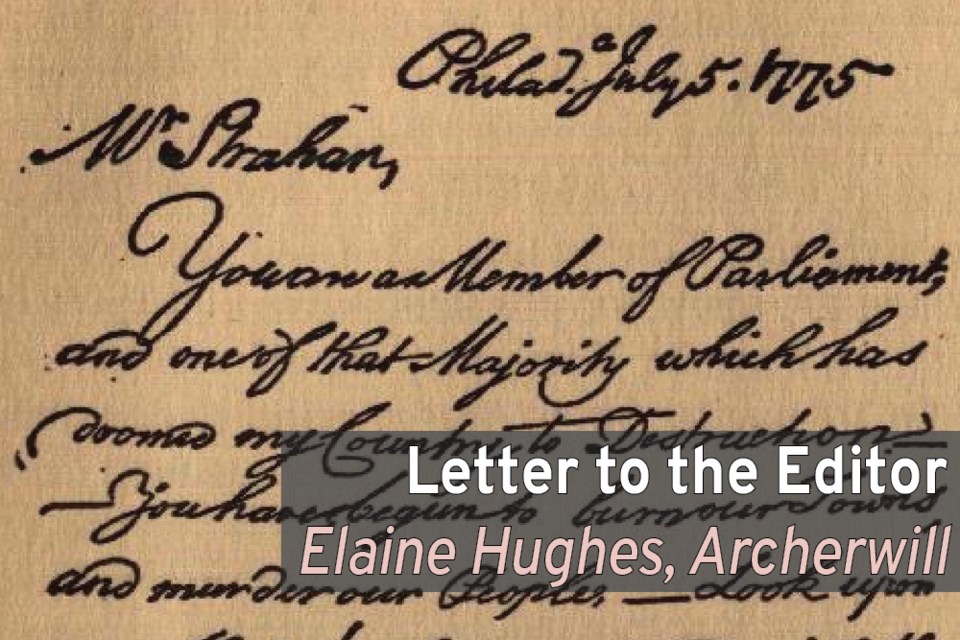 Philad.ª July 5. 1775
Mr Strahan,
You are a Member of Parliament,
and one of that Majority which has
doomed my Country to Destruction.
— You have begun to burn our Towns
and murder our People. — Look upon
Letter to the Editor
Elaine Hughes, Archerwill